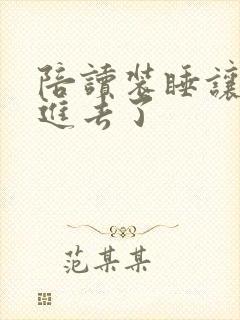 陪讀裝睡讓
進去了
范某某